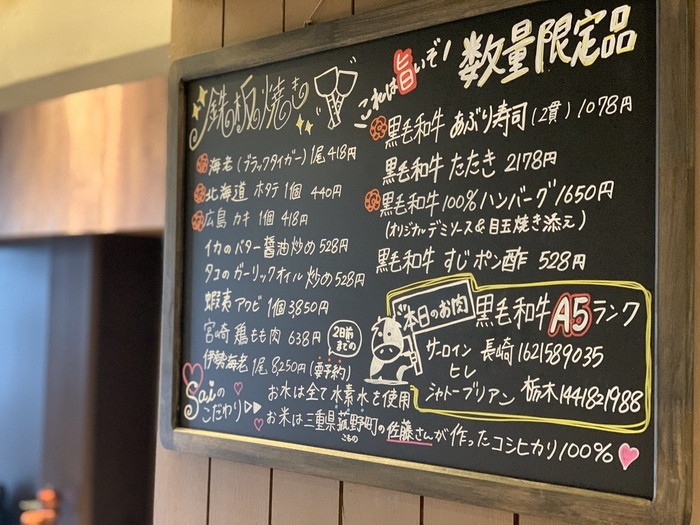 鉄板焼き
海老(ブラックタイガー)1尾 418円
北海道 ホタテ 1個 440円
広島 カキ 1個 418円
イカのバター醤油炒め 528円
タコのガーリックオイル炒め 528円
蝦夷アワビ 1個 3850円
宮崎 鶏もも肉 638円
伊勢海老 1尾 8250円(要予約)
2日前までの
これは旨いぞ!
数量限定品
黒毛和牛 あぶり寿司(2貫)1078円
黒毛和牛 たたき 2178円
黒毛和牛 100%ハンバーグ 1650円
(オリジナルデミソース&目玉焼き添え)
黒毛和牛 すじポン酢 528円
本日のお肉
黒毛和牛 A5ランク
サーロイン 長崎 1621589035
ヒレ
シャトーブリアン 栃木 1441821988
Saiの
こだわり▷▷
お水は全て水素水を使用
お米は三重県菰野町の佐藤さんが作ったコシヒカリ100%
こもの